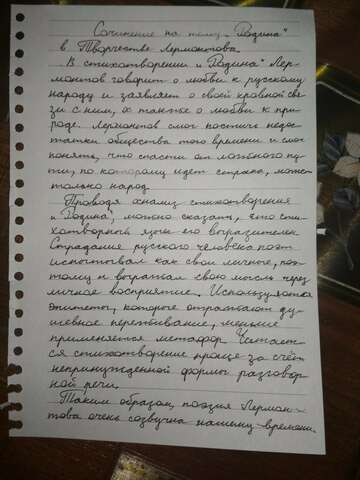 Сочинение на тему „Родина"
в Творчестве Лермонтова.
В стихотворении „Родина" Лер-
монтов говорит о любви к русскому
народу и заявляет о своей кровной свя-
зи с ним, а также о любви к при-
роде. Лермонтов смог постичь недос-
татки общества того времени и смог
понять, что спасти от ложного пу-
ти, по которому идет страна, может
только народ.
Проводя анализ стихотворения
„Родина", можно сказать, что сти-
хотворный язык его выразителен.
Страдание русского человека поэт
испытывал как свои личные, поэ-
тому и выражал свою мысль через
личное восприятие. Используются
эпитеты, которые отражают ду-
шевное переживание, меньше
применяется метафор. Читает-
ся стихотворение проще за счёт
непринужденной формы разговор
ной речи.
Таким образом, поэзия Лермон-
това очень созвучна нашему времени.